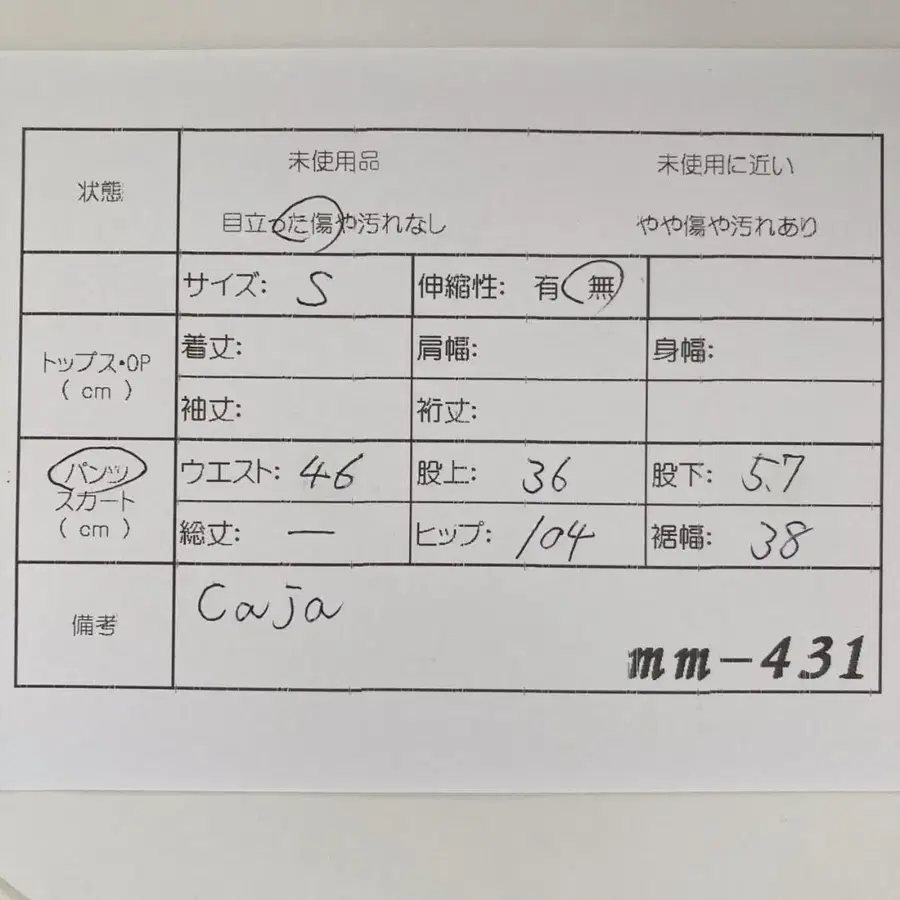 状態
未使用品 未使用に近い
目立った傷や汚れなし やや傷や汚れあり
サイズ: S 伸縮性: 有 無
トップス・OP
( cm )
着丈: 肩幅: 身幅:
袖丈: 裄丈:
パンツ
スカート
( cm )
ウエスト: 46 股上: 36 股下: 57
総丈: ー ヒップ: 104 裾幅: 38
備考
Caja
mm-431